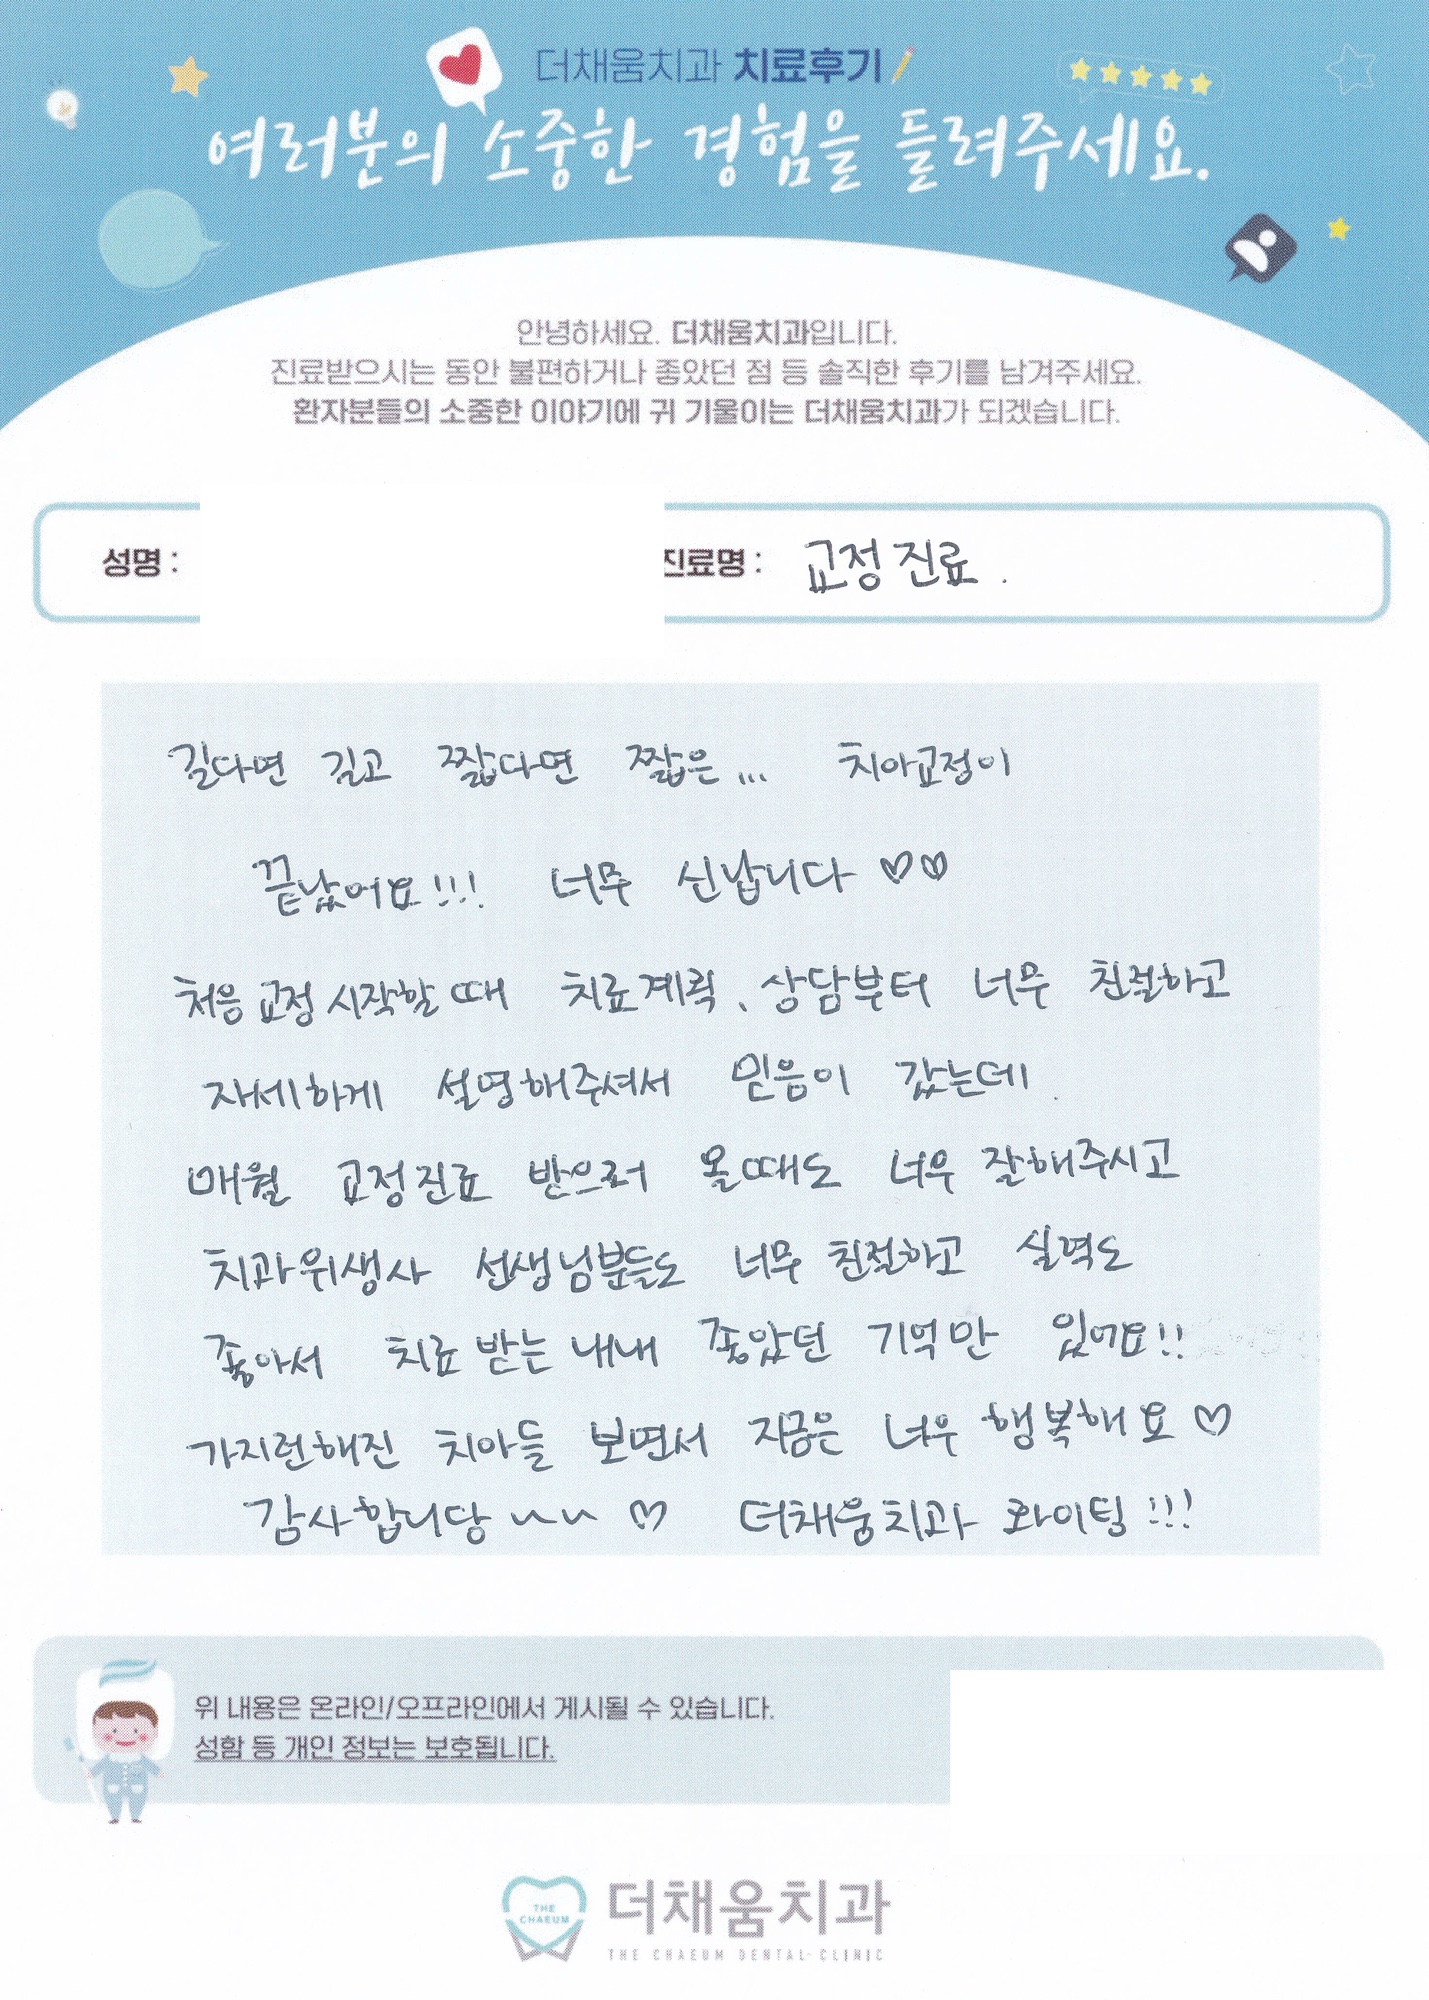 더채움치과 치료후기
여러분의 소중한 경험을 들려주세요.
안녕하세요. 더채움치과입니다.
진료받으시는 동안 불편하거나 좋았던 점 등 솔직한 후기를 남겨주세요.
환자분들의 소중한 이야기에 귀 기울이는 더채움치과가 되겠습니다.
성명 : 진료명 : 교정 진료.
길다면 길고 짧다면 짧은... 치아교정이
끝났어요!!! 너무 신납니다 ♡♡
처음 교정 시작할 때 치료계획, 상담부터 너무 친절하고
자세하게 설명해주셔서 믿음이 갔는데.
매월 교정진료 받으러 올때도 너무 잘해주시고
치과위생사 선생님분들도 너무 친절하고 실력도
좋아서 치료 받는 내내 좋았던 기억만 있어요!!
가지런해진 치아들 보면서 지금은 너무 행복해요 ♡
감사합니당 ~~ ♡ 더채움치과 화이팅!!!
위 내용은 온라인/오프라인에서 게시될 수 있습니다.
성함 등 개인 정보는 보호됩니다.
THE
CHAEUM
더채움치과
THE CHAEUM DENTAL-CLINIC